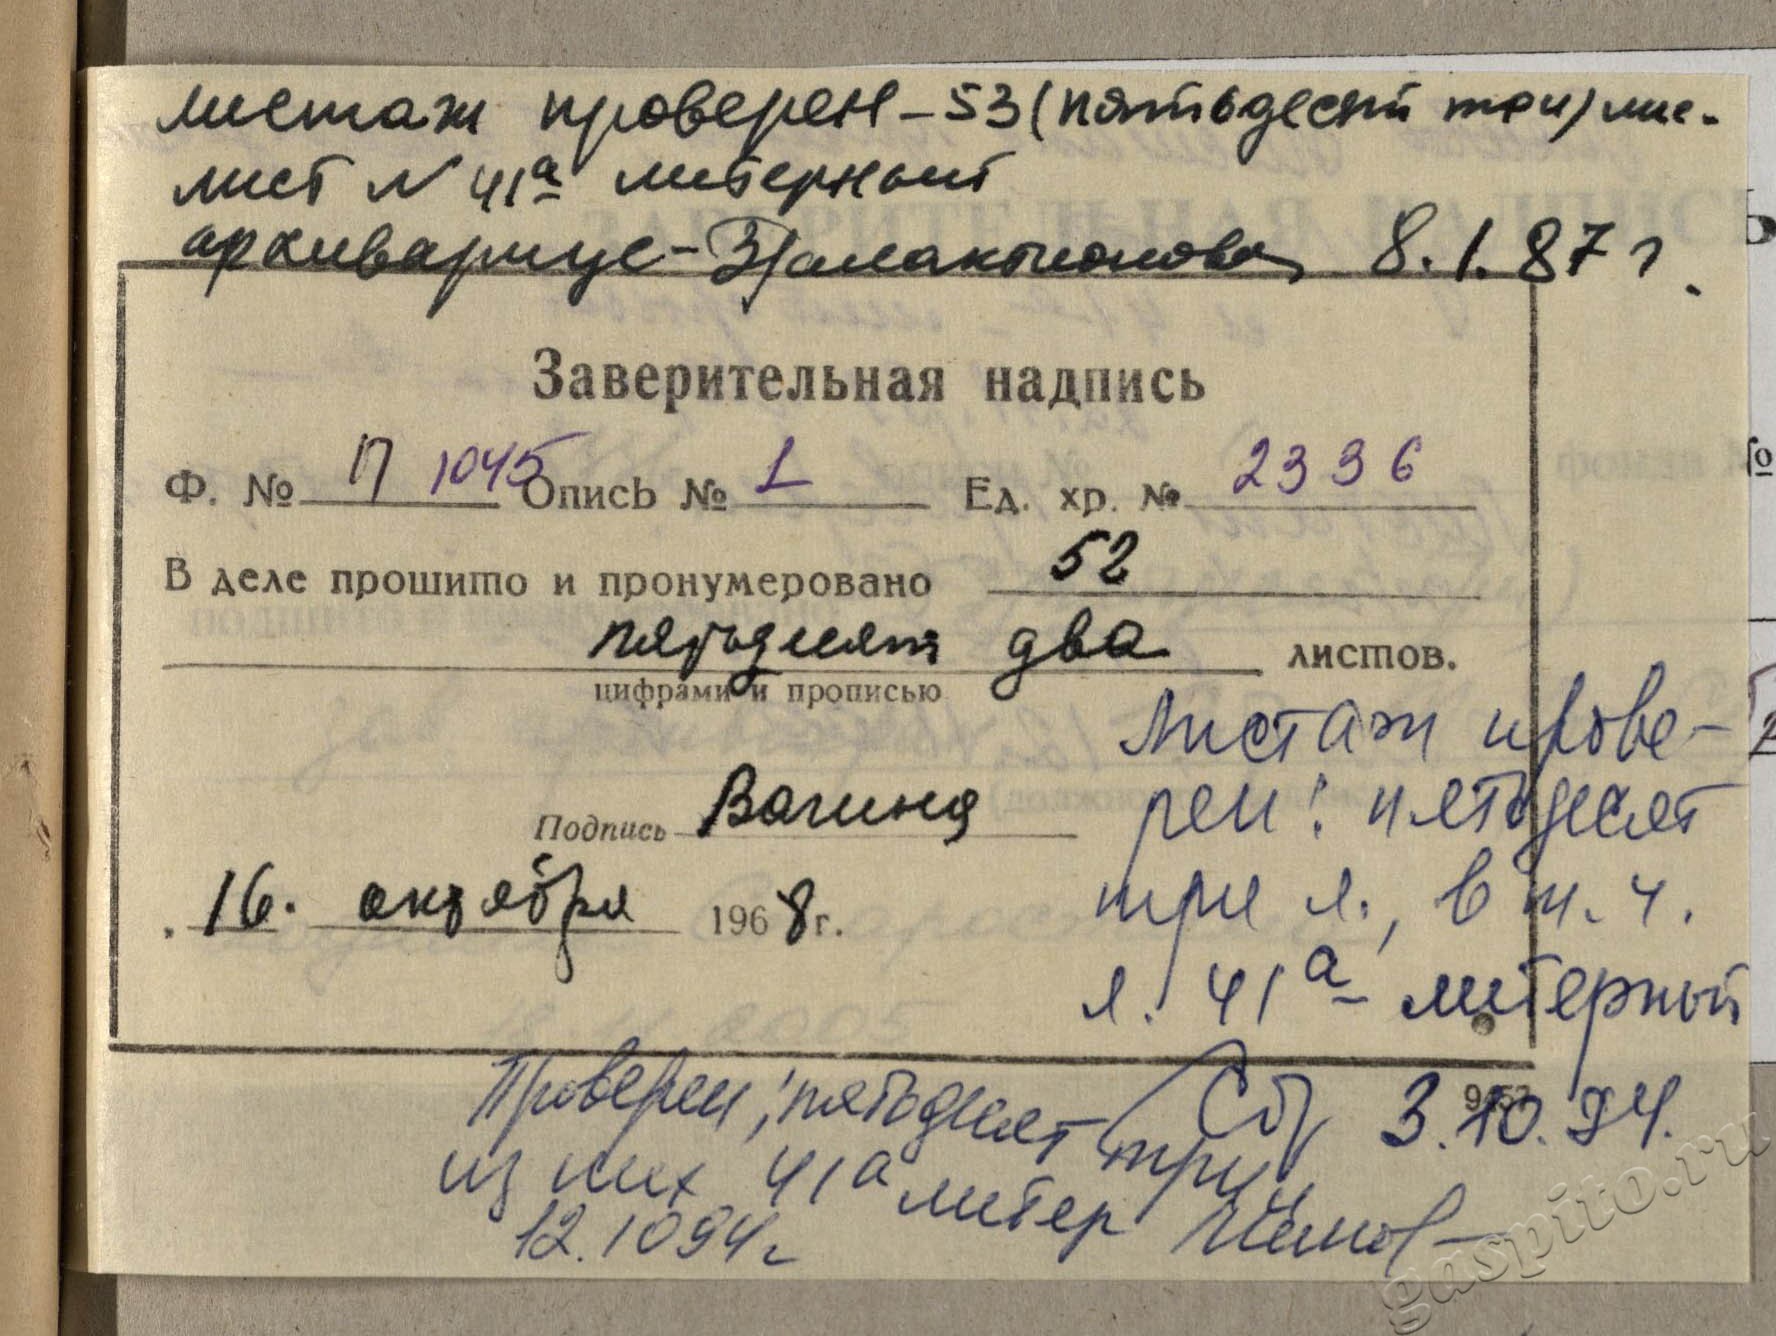 листаж проверен – 53 (пятьдесят три) лис.
лист N 41а литерный
архивариус – 8.1.87 г.
Заверительная надпись
Ф. № П 1045 Опись № 1 Ед. хр. № 2336
В деле прошито и пронумеровано 52
пятьдесят два листов.
цифрами и прописью
Листаж прове-
рен: пятьдесят
три л., в т. ч.
л. 41а литерный
Подпись Вагина
16. октября 1968 г.
3.10.94.
Проверен, пятьдесят три
из них 41а литер
12.10 94 г
gaspito.ru